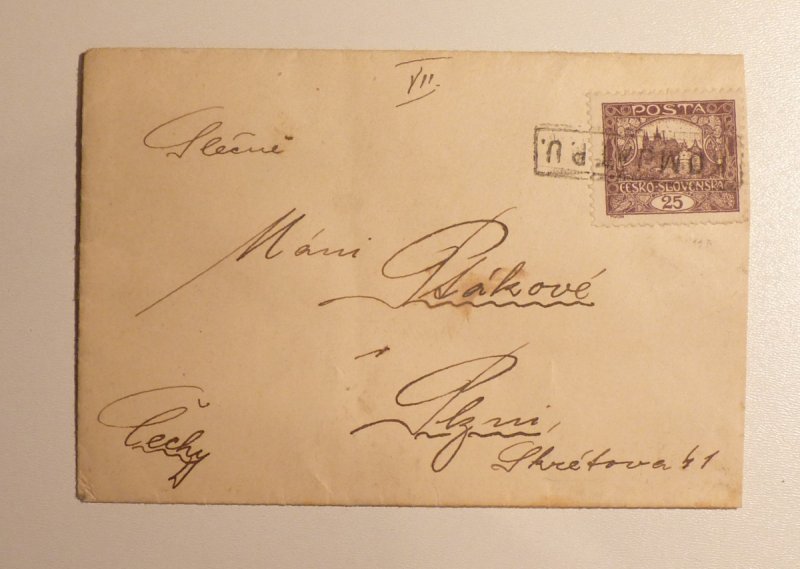 VII.
POSTA
ČESKO-SLOVENSKÁ
25
Slečně
Máni Ptákové
v
Plzni,
Čechy
Skrétova 41